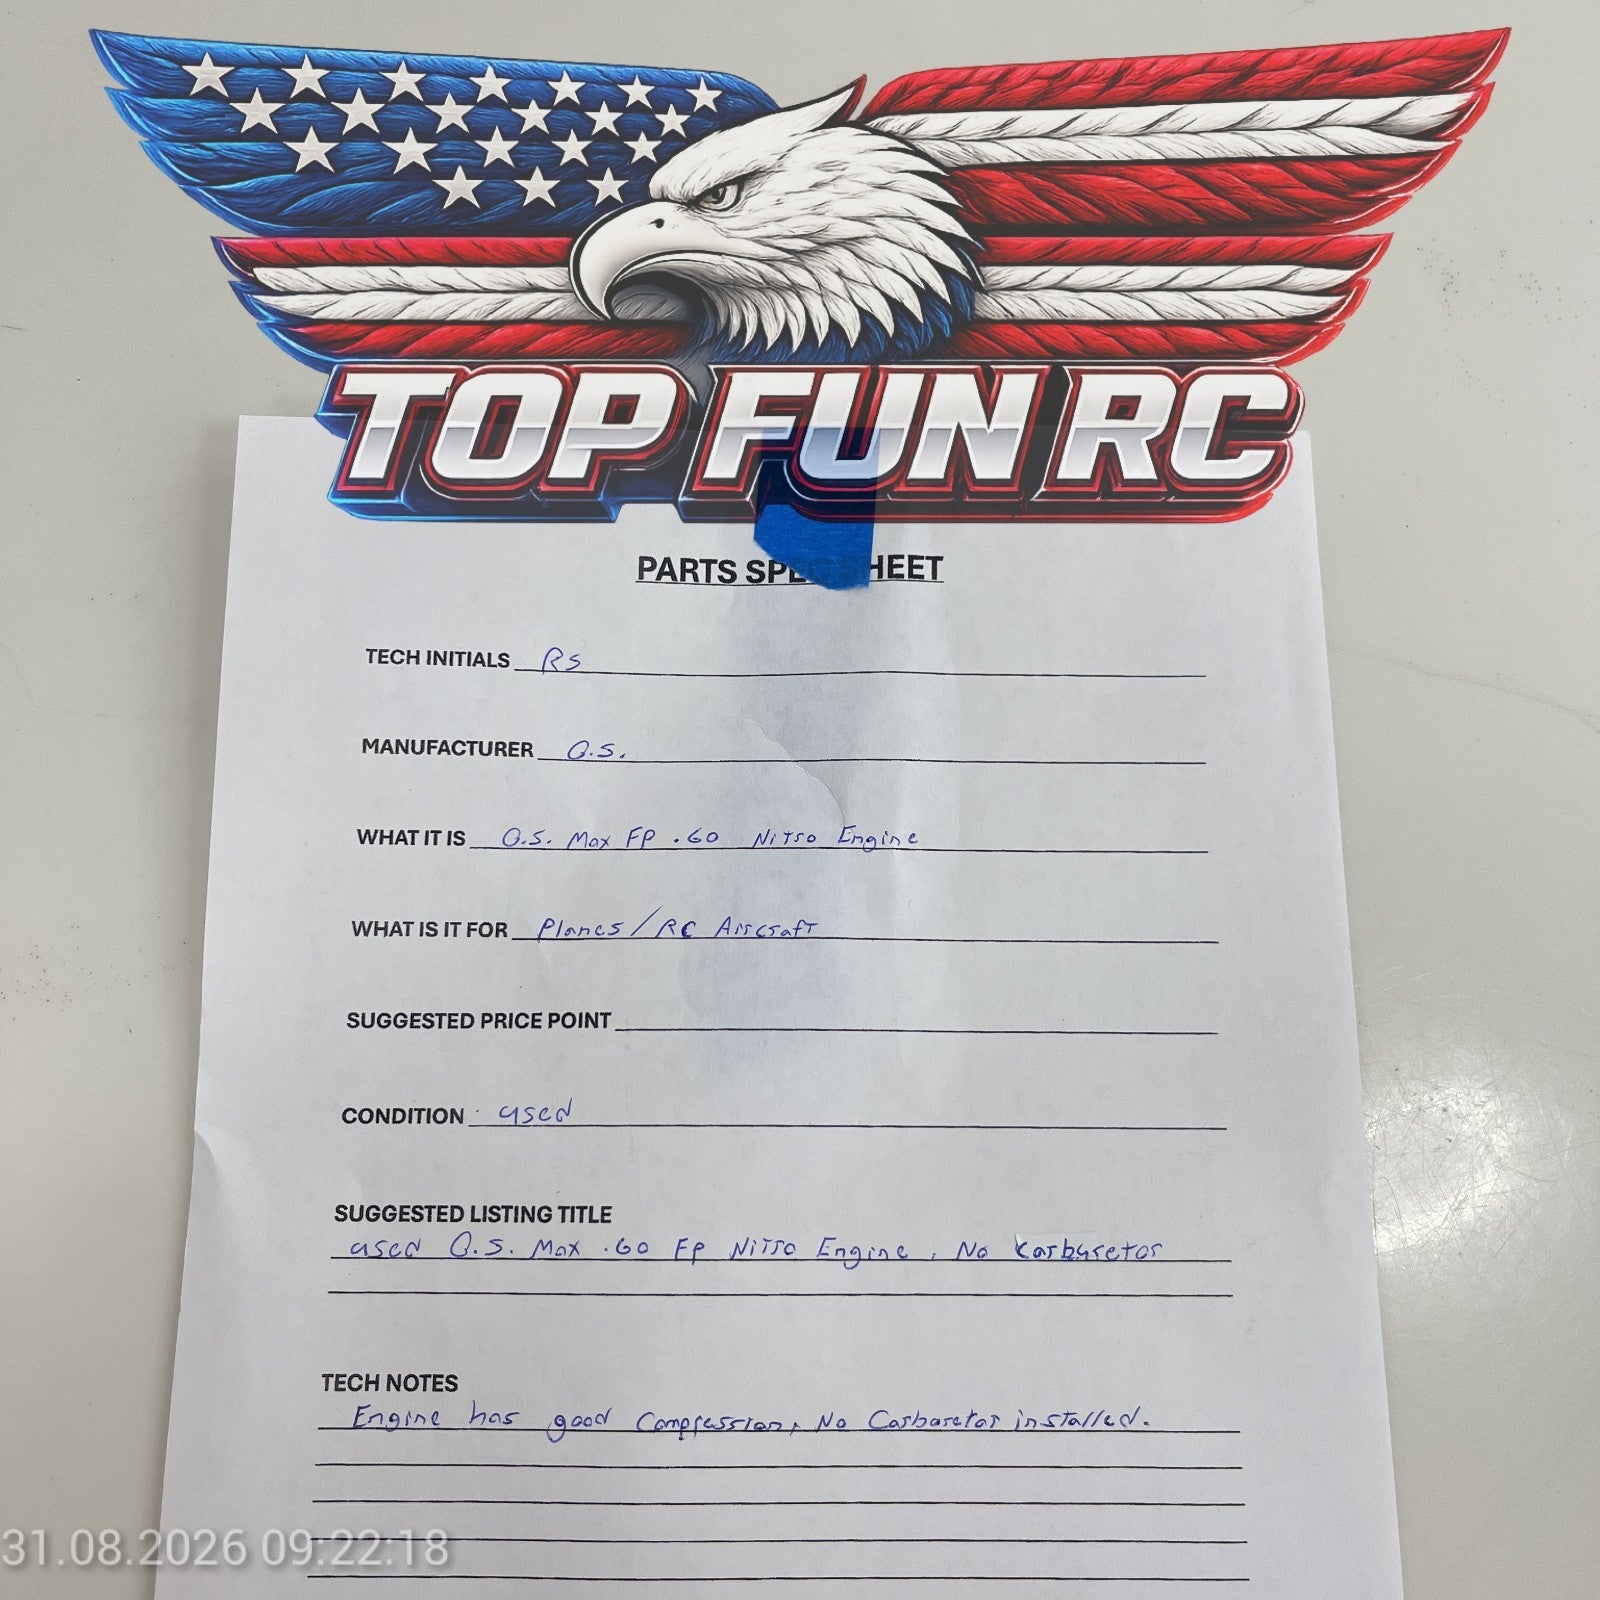 TOP FUN RC
PARTS SPEC SHEET
TECH INITIALS RS
MANUFACTURER O.S.
WHAT IT IS O.S. Max FP .60 Nitro Engine
WHAT IS IT FOR Planes/RC Aircraft
SUGGESTED PRICE POINT
CONDITION used
SUGGESTED LISTING TITLE
used O.S. Max .60 FP Nitro Engine, No Carburetor
TECH NOTES
Engine has good Compression, No Carburetor installed.
31.08.2026 09:22:18